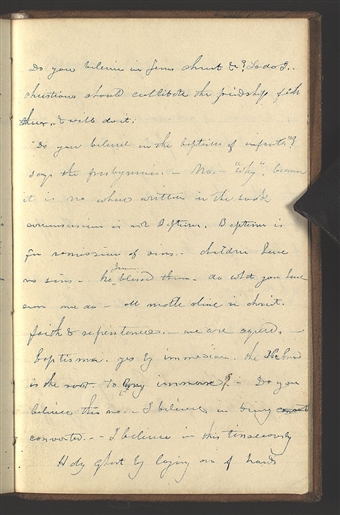 Do you believe in Jesus christ &c? So do I.
christians should cultivate the friendship of
others, & will do it.
"Do you believe in the baptism of infants"?
says the presbyterian. - No, - "Why", because
it is no where written in the
circumcision is not baptism. Baptism is
for remission of sins. - children have
no sins - he blessed them. do what you have
seen me do - all made alive in christ.
faith & repentance. - we are agreed. -
baptism. yes by immersion. the
is the root. To bury immerse? - Do you
believe this - I believe in being
converted. - I believe in this tenaciously
Holy ghost by laying on of hands